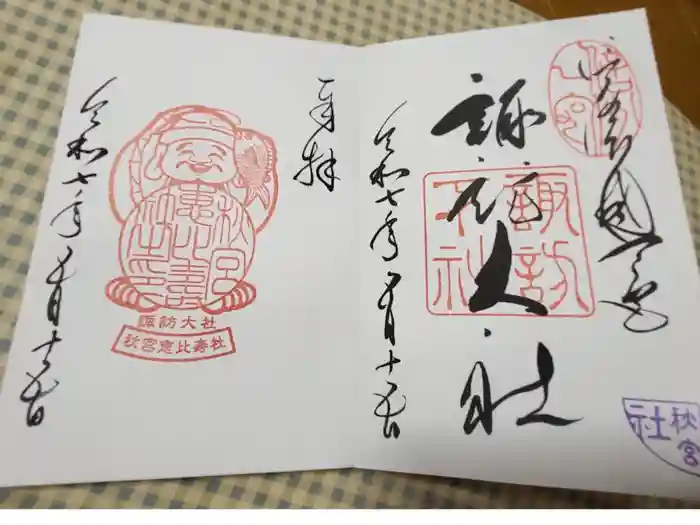 信濃國一之宮
諏訪大社
諏訪大社
令和七年五月十六日
秋宮
社
奉拝
秋宮恵比寿社之印
諏訪大社
秋宮恵比寿社
令和七年五月十六日